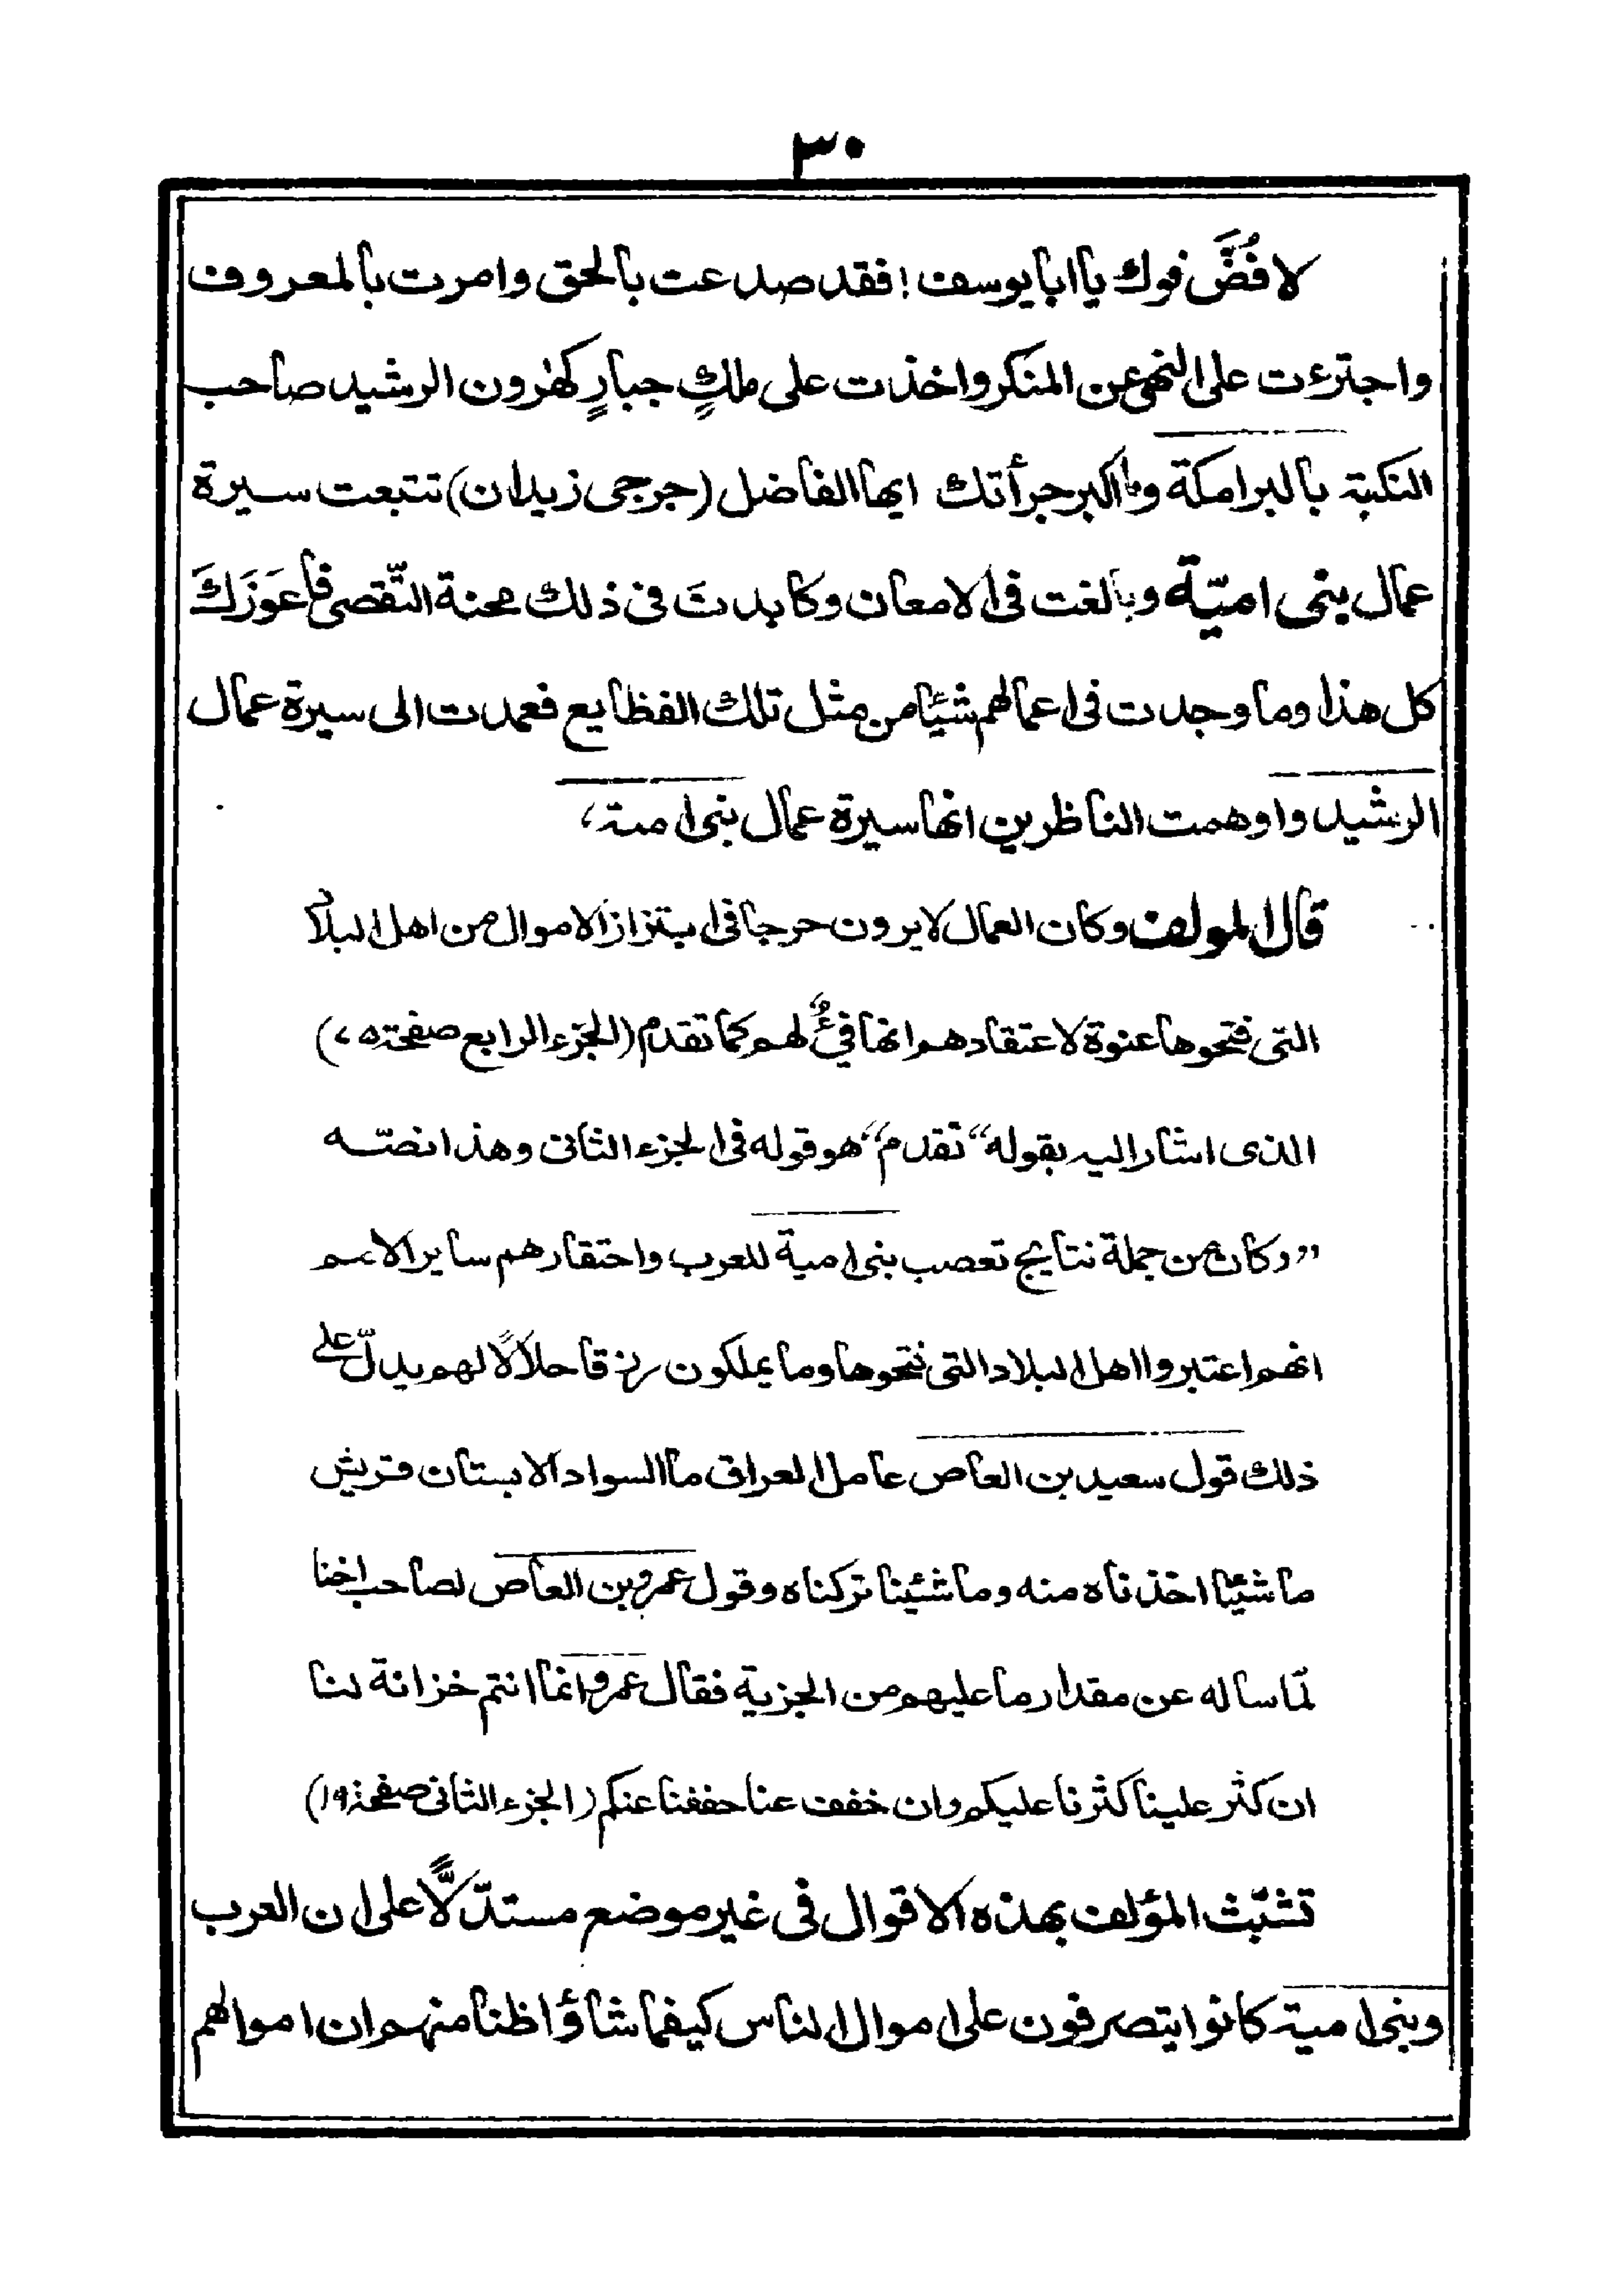 ٣٠
لا فُضَّ فوك يا ابا يوسف! فقد صدعت بالحق وامرت بالمعروف
واجترءت على النهى عن المنكر واخذت على ملكٍ جبارٍ كهٰرون الرشيد صاحب
النكبة بالبرامكة وما اكبر جرأتك ايها الفاضل (جرجى زيدان) تتبعت سيرة
عمال بنى اميّة وبالغت فى الامعان وكابدتَ فى ذلك محنة التّقصى فاعوَزَكَ
كل هذا وما وجدت فى اعمالهم شيًا من مثل تلك الفظايع فعمدت الى سيرة عمال
الرشيد واوهمت الناظرين انها سيرة عمال بنى امية،
قال المولف وكان العمال لا يرون حرجا فى ابتزاز الاموال من اهل البلاد
التى فتحوها عنوة لاعتقادهم انها فيءٌ لهم كما تقدم (الجزء الرابع صفحة ٧٥)
الذى اشار اليه بقوله "تقدم" هو قوله فى الجزء الثانى وهذا نصّه
"وكان من جملة نتايج تعصب بنى امية للعرب واحتقارهم ساير الامم
انهم اعتبروا اهل البلاد التى فتحوها وما يملكون رزقا حلالًا لهم يدلّ على
ذلك قول سعيد بن العاص عامل العراق ما السواد الا بستان قريش
ما شيًنا اخذناه منه وما شئينا تركناه وقول عمرو بن العاص لصاحب اخنا
لمّا ساله عن مقدار ما عليهم من الجزية فقال عمرو انما انتم خزانة لنا
ان كثر علينا كثرنا عليكم وان خفف عنا خففنا عنكم (الجزء الثانى صفحة ١٩)
تشبّث المؤلف بهذه الاقوال فى غير موضع مستدّلًّا على ان العرب
وبنى امية كانوا يتصرفون على اموال الناس كيفما شاؤا ظنا منهم ان اموالهم